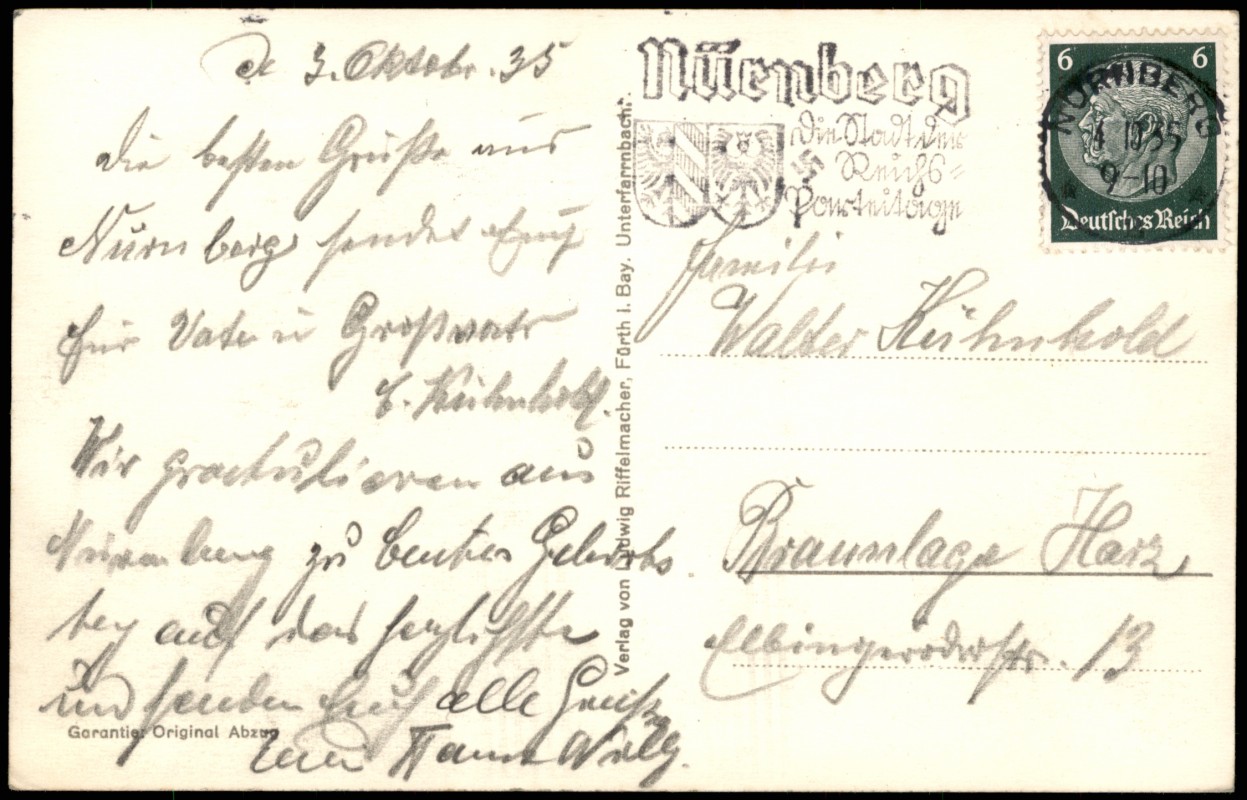 3. Oktobr. 35
Die besten Grüße aus
Nürnberg sendet Euch
für Vater u Großvater
E. Kühnhold.
Wir gratulieren aus
Nürnberg zu Geburts
tag auf das herzlichste
und senden Euch alle Grüße
Hans Willy.
Garantie: Original Abzug
Verlag von Ludwig Riffelmacher, Fürth i. Bay. Unterfarrnbachr.
Nürnberg
Die Stadt der
Reichs-
Parteitage
6 6
NÜRNBERG
4.10.35
9-10
Deutsches Reich
Familie
Walter Kühnhold
Braunlage Harz
Elbingeroderstr. 13